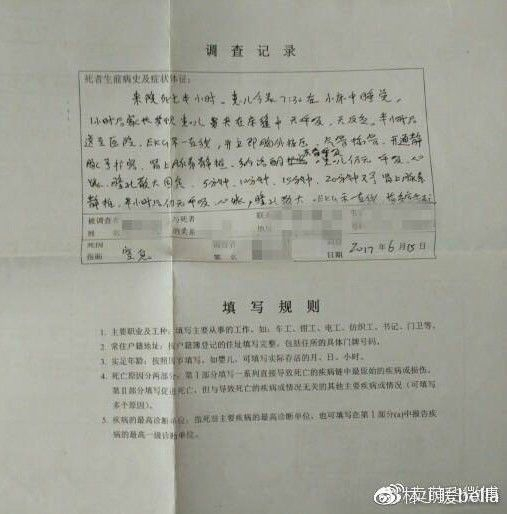 调查记录
死者生前病史及症状体征:
来院死亡半小时。患儿今晨7:30在小床中睡觉,
1小时后家长发现患儿鼻夹在床缝中,无呼吸,无反应,半小时后
送至医院,EKG示一直线,并立即胸外按压,气管插管,开通静
脉,肾上腺素静推,患儿仍无呼吸,心
跳,瞳孔散大固定,5分钟,10分钟,15分钟,20分钟又予肾上腺素
静推,半小时后仍无呼吸,心跳,瞳孔散大,EKG示一直线
被调查者
姓名
与死者
的关系
死因
推断
窒息
签名
日期
2017年6月15日
填写规则
1. 主要职业及工种:填写主要从事的工作,如:车工、钳工、电工、纺织工、书记、门卫等。
2. 常住户籍地址:按户籍簿登记的住址填写完整,包括住所的具体门牌号码。
3. 实足年龄:按照周岁填写,如婴儿,可填写实际存活的月、日、小时。
4. 死亡原因分两部分:第Ⅰ部分填写一系列直接导致死亡的疾病链中最原始的疾病或损伤。
第Ⅱ部分填写促进死亡,但与导致死亡的疾病或情况无关的其他主要疾病或情况(可填写
多个原因)。
5. 疾病的最高诊断单位:指死后主要疾病的最高诊断单位,也可填写在第Ⅰ部分(a)中报告疾
病的最高一级诊断单位。
bella